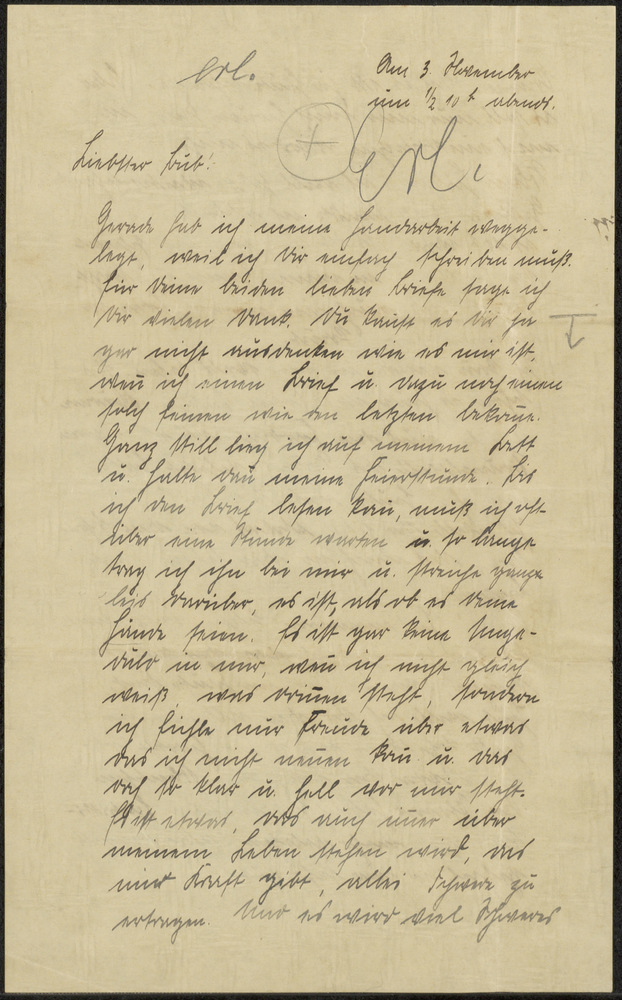 erl.
Am 3. November
um 1/2 10 h abends.
erl.
Liebster Bub!
Gerade hab ich meine Handarbeit wegge-
legt, weil ich Dir einfach schreiben muß.
Für Deine beiden lieben Briefe sage ich
Dir vielen Dank. Du kannst es Dir ja
gar nicht ausdenken wie es mir ist,
wen̄ ich einen Brief u. dazu noch einen
solch feinen wie den letzten bekom̄e.
Ganz still lieg ich auf meinem Bett
u. halte dan̄ meine Feierstunde. Bis
ich den Brief lesen kan̄, muß ich oft
über eine Stunde warten u. so lange
trag ich ihn bei mir u. streiche ganz
leis darüber, es ist, als ob es Deine
Hände seien. Es ist gar keine Unge-
duld in mir, wen̄ ich nicht gleich
weiß, was drin̄en steht, sondern
ich fühle nur Freude über etwas
das ich nicht nen̄en kan̄ u. das
doch so klar u. hell vor mir steht.
Es ist etwas, das auch im̄er über
meinem Leben stehen wird, das
mir Kraft gibt, alles Schwere zu
ertragen. Und es wird viel Schweres